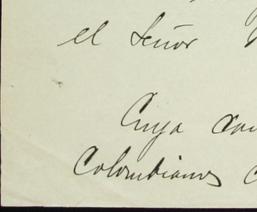 el Señor
Cuya
Colombianos